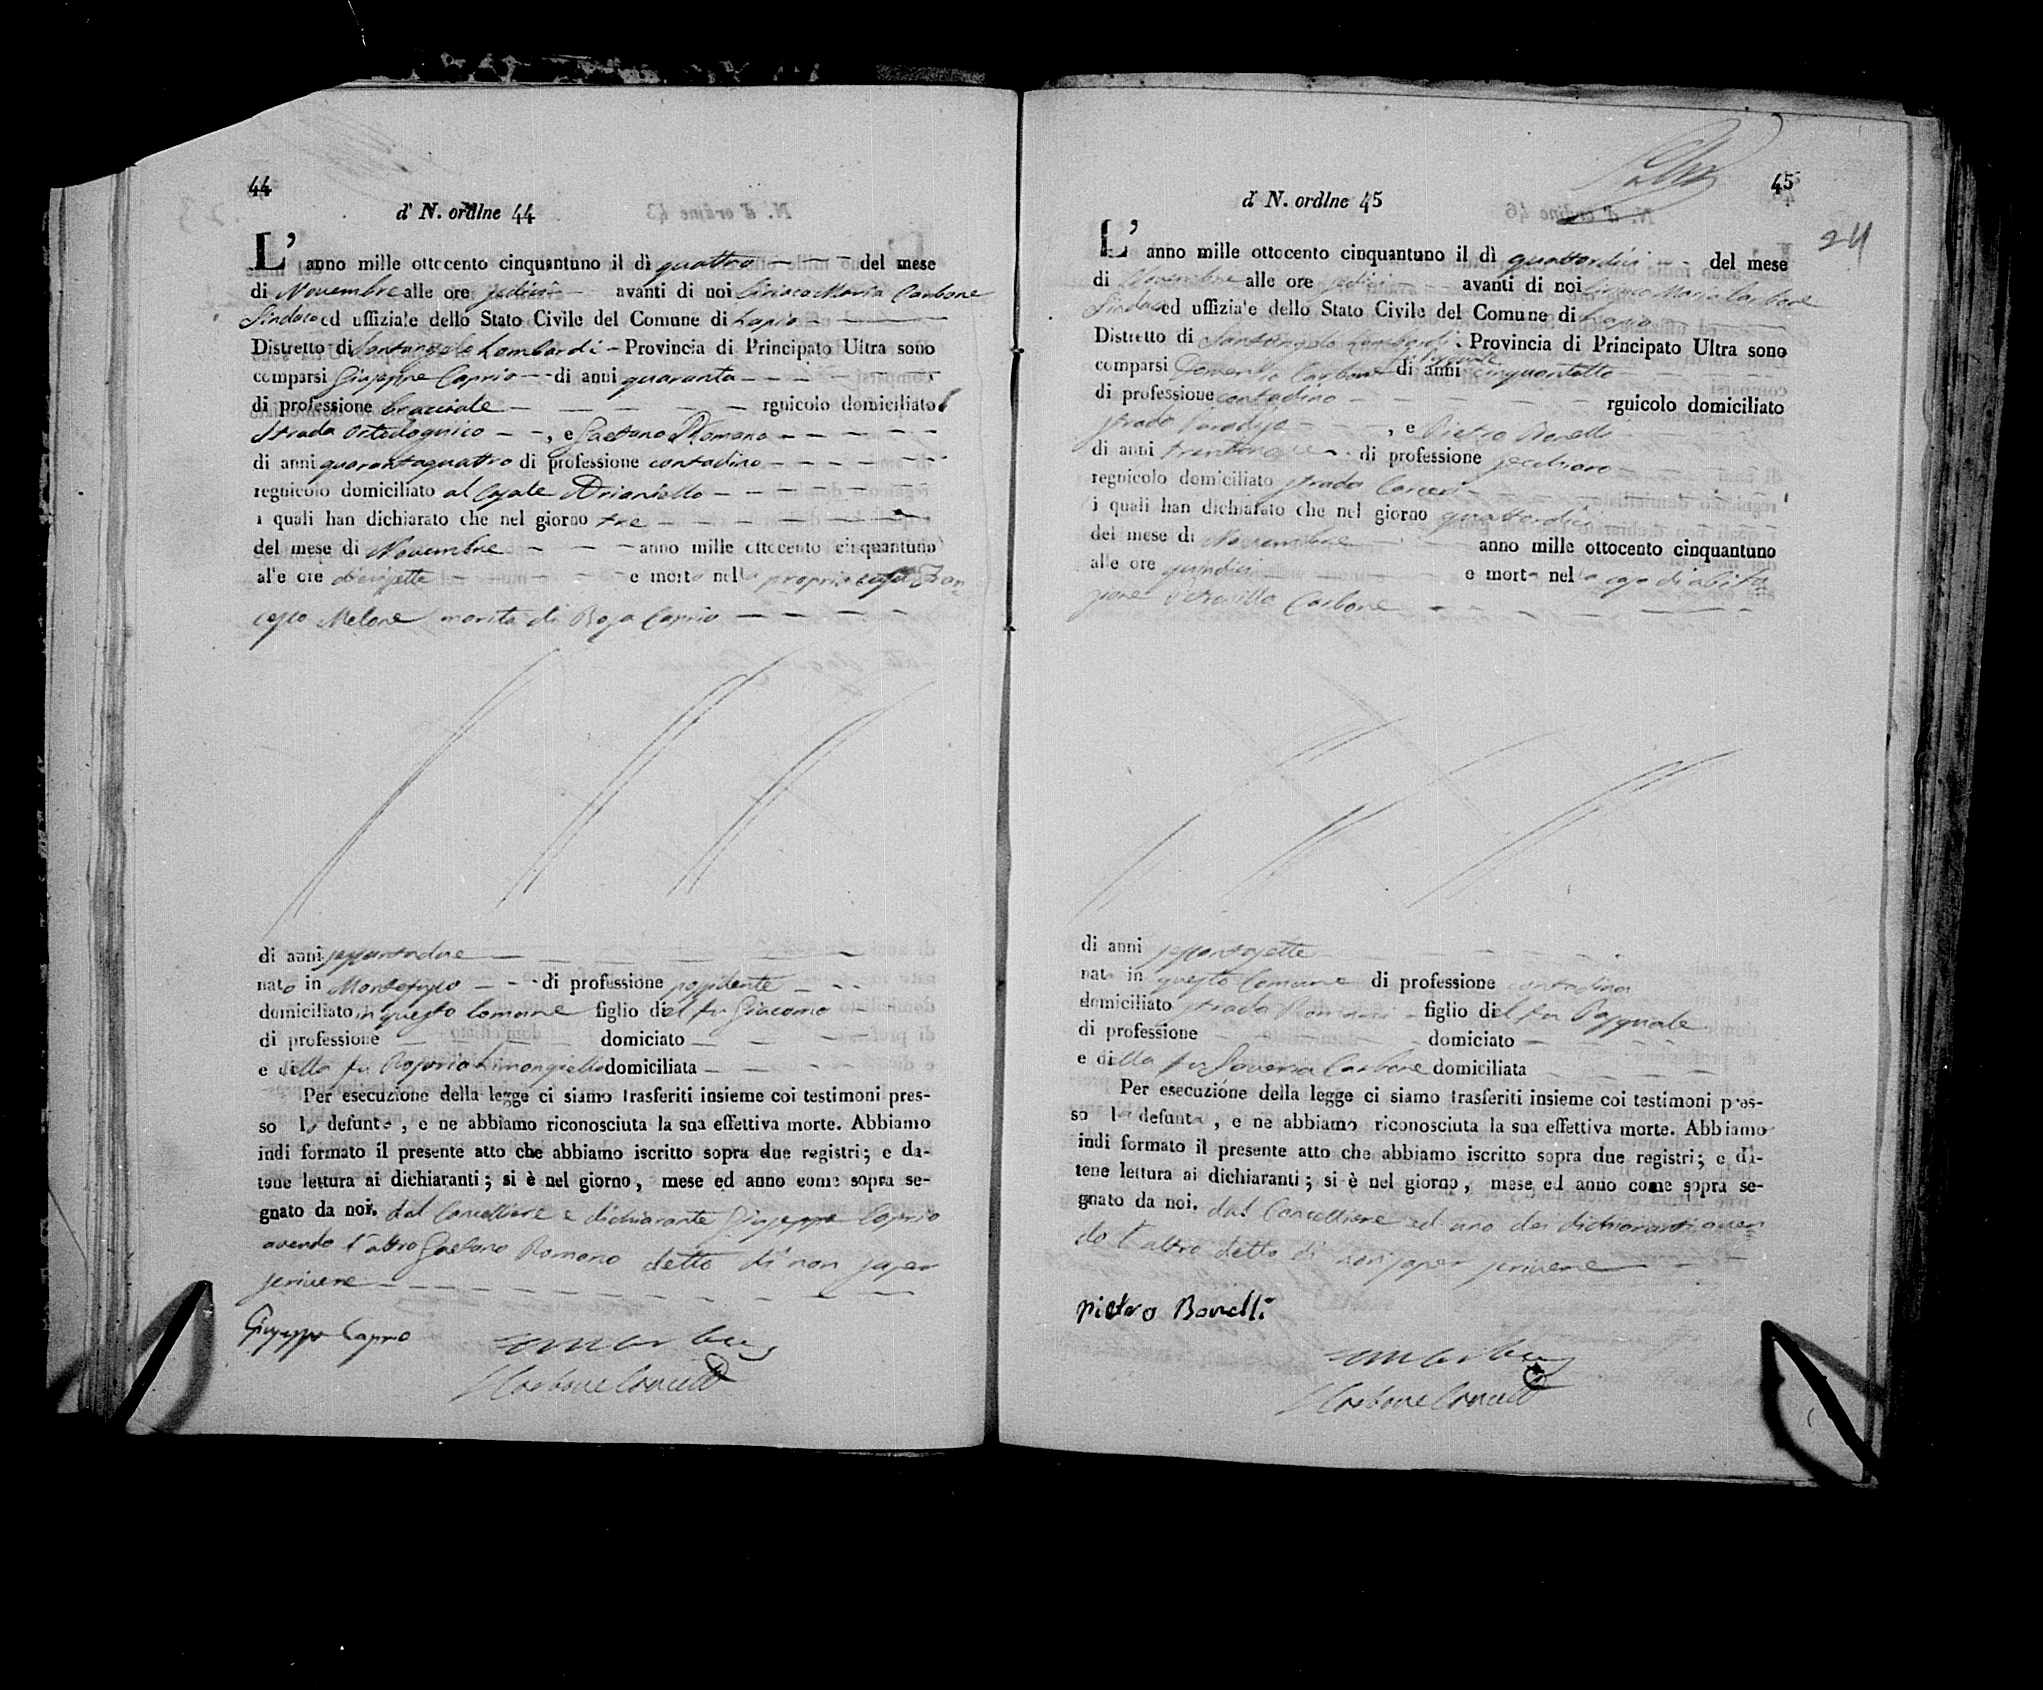 44
d' N. ordlne 44
L' anno mille ottocento cinquantuno il dì quattro del mese
di Novembre alle ore sedici avanti di noi Ciriaco Maria Carbone
Sindaco ed uffiziale dello Stato Civile del Comune di Lapio
Distretto di Santangelo Lombardi Provincia di Principato Ultra sono
comparsi Giuseppe Caprio di anni quaranta
di professione bracciale rgnicolo domiciliato
strada , e Gaetano Romano
di anni quarantaquattro di professione contadino
regnicolo domiciliato al Casale Arianiello
i quali han dichiarato che nel giorno tre
del mese di Novembre anno mille ottocento cinquantuno
alle ore diecisette e morto nella propria casa Fran
cesco Melone marito di Rosa Caprio
di anni sessantadue
nato in Montefusco di professione possidente
domiciliato in questo Comune figlio del fu Giacomo
di professione domiciato
e della fu Rosaria Limongiello domiciliata
Per esecuzione della legge ci siamo trasferiti insieme coi testimoni pres-
so lo defunto , e ne abbiamo riconosciuta la sua effettiva morte. Abbiamo
indi formato il presente atto che abbiamo iscritto sopra due registri; e da-
tone lettura ai dichiaranti; si è nel giorno, mese ed anno come sopra se-
gnato da noi, dal Cancelliere e dichiarante Giuseppe Caprio
avendo l'altro Gaetano Romano detto di non saper
scrivere
Giuseppe Caprio
Carbone Cancell
45
24
d' N. ordlne 45
L' anno mille ottocento cinquantuno il dì quattordici del mese
di Novembre alle ore sedici avanti di noi Ciriaco Maria Carbone
Sindaco ed uffiziale dello Stato Civile del Comune di Lapio
Distretto di Santangelo Lombardi Provincia di Principato Ultra sono
comparsi Carbone di anni cinquantotto
di professione contadino rgnicolo domiciliato
strada Paradiso , e Pietro Bonelli
di anni di professione
regnicolo domiciliato strada Carceri
i quali han dichiarato che nel giorno quattordici
del mese di Novembre anno mille ottocento cinquantuno
alle ore quindici e morta nella casa di abita
zione Petronilla Carbone
di anni sessantasette
nata in questo Comune di professione contadina
domiciliato strada figlio del fu Pasquale
di professione domiciato
e della fu Saveria Carbone domiciliata
Per esecuzióne della legge ci siamo trasferiti insieme coi testimoni pres-
so la defunta , e ne abbiamo riconosciuta la sua effettiva morte. Abbiamo
indi formato il presente atto che abbiamo iscritto sopra due registri; e da-
tene lettura ai dichiaranti; si è nel giorno, mese ed anno come sopra se-
gnato da noi, dal Cancelliere ed uno dei dichiaranti aven
do l'altro detto di non saper scrivere
pietro Bonelli
Carbone Cancell